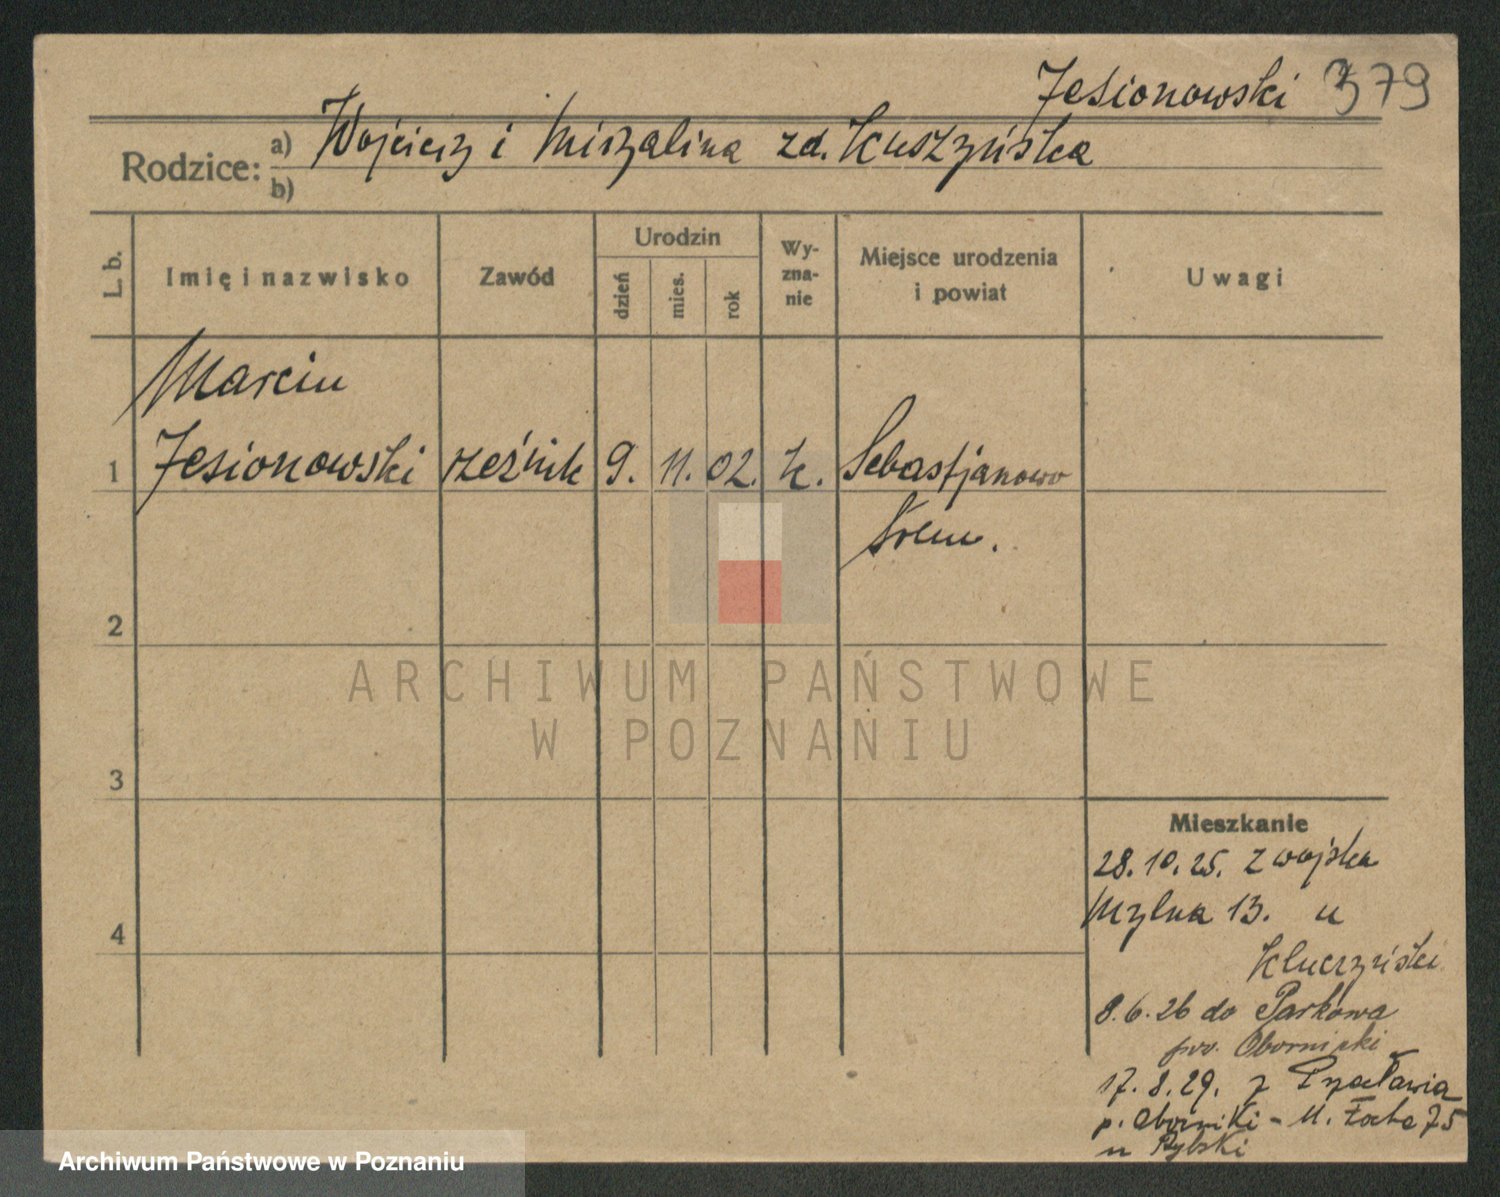 Jesionowski 379
Rodzice: a) Wojciech i Michalina zd. Kuszyńska
b)
L. b.
Imię i nazwisko
Zawód
Urodzin
dzień
mies.
rok
Wy-
zna-
nie
Miejsce urodzenia
i powiat
Uwagi
Marcin
1 Jesionowski rzeźnik 9. 11. 02. k. Sebastjanowo
Śrem.
2
3
4
Mieszkanie
28.10.25. z wojska
Mylna 13. u
Kluczyński
8.6.26 do Parkowa
pow. Obornicki
17.8.29. z
p. Oborniki - M. Focha 75
u Rybski
ARCHIWUM PAŃSTWOWE
W POZNANIU
Archiwum Państwowe w Poznaniu